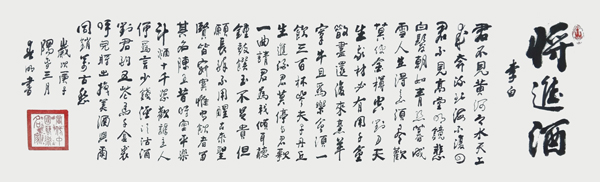 將進酒
李白
君不見黃河之水天上
來奔流到海不復回
君不見高堂明鏡悲
白髮朝如青絲暮成
雪人生得意須盡歡
莫使金樽空對月天
生我材必有用千金
散盡還復來烹羊
宰牛且為樂會須一
飲三百杯岑夫子丹丘
生進酒君莫停與君歌
一曲請君為我傾耳聽
鐘鼓饌玉不足貴但
願長醉不用醒古來聖
賢皆寂寞惟有飲者留
其名陳王昔時宴平樂
斗酒十千恣歡謔主人
何為言少錢徑須沽酒
對君酌五花馬千金裘
呼兒將出換美酒與爾
同銷萬古愁
歲次庚子
陽春三月
書